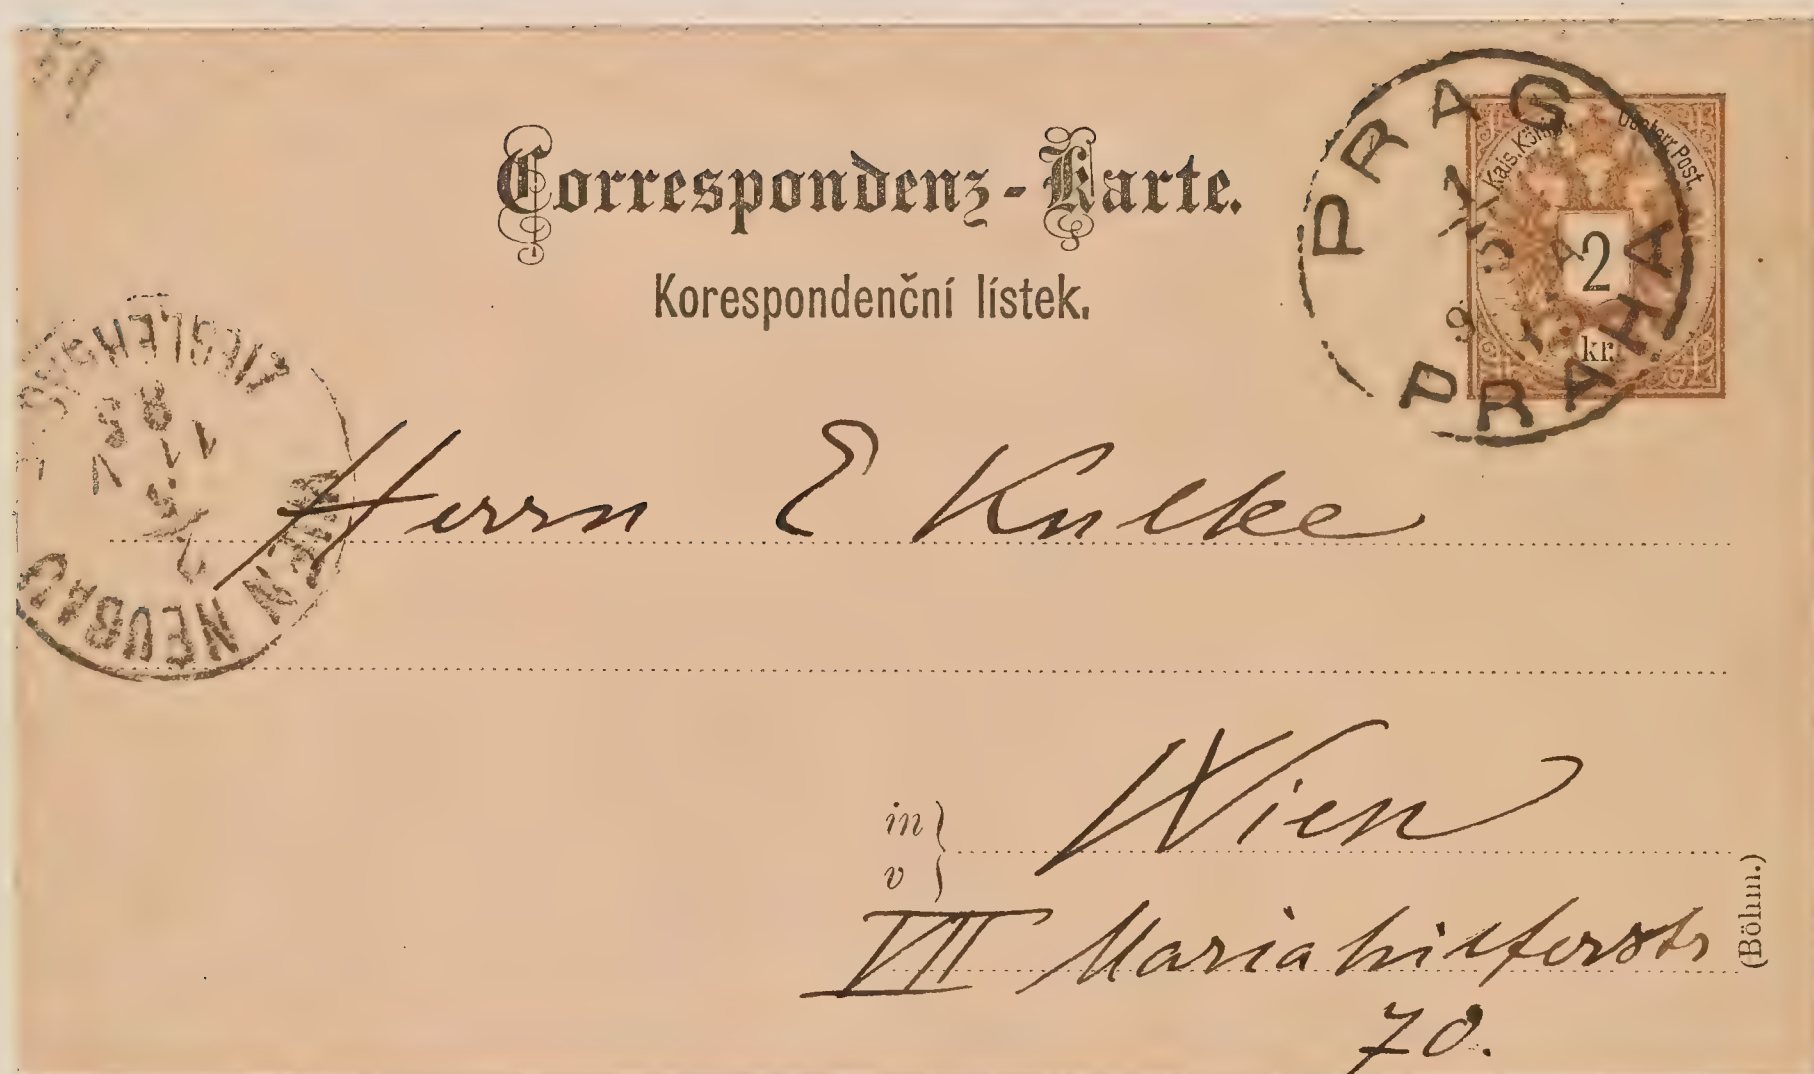 Correspondenz-Karte.
Korespondenční lístek.
PRAG
PRAHA
Kais. Königl. Oesterr. Post.
2
kr.
ZIEGLERGASSE
WIEN NEUBAU
Herrn E Kulke
in
v
Wien
VII Mariahilferstr
70.
(Böhm.)